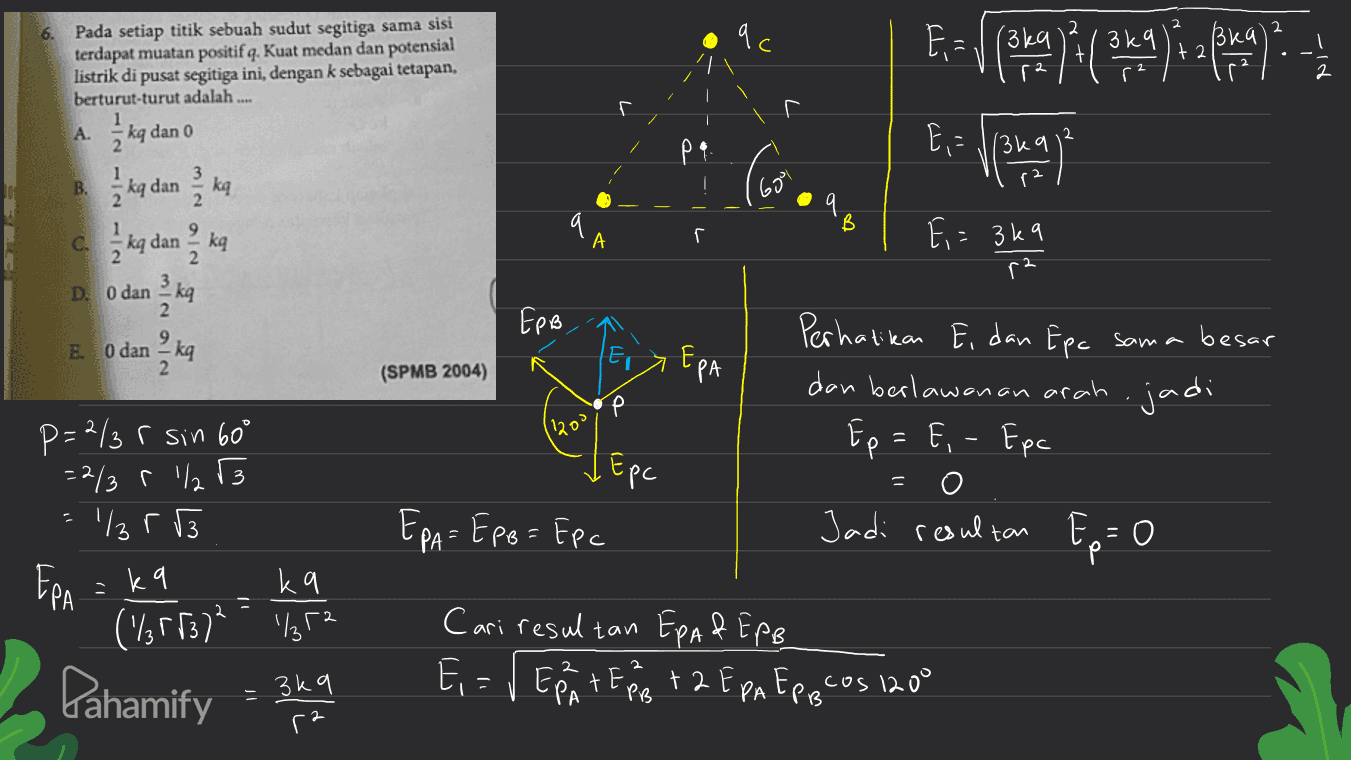 6. Pada setiap titik sebuah sudut segitiga sama sisi
terdapat muatan positif q. Kuat medan dan potensial
listrik di pusat segitiga ini, dengan k sebagai tetapan,
berturut-turut adalah ....
A. 1/2 kq dan 0
B. 1/2 kq dan 3/2 kq
C. 1/2 kq dan 9/2 kq
D. 0 dan 3/2 kq
E. 0 dan 9/2 kq
(SPMB 2004)
P = 2/3 r sin 60°
= 2/3 r 1/2 √3
= 1/3 r √3
EPA = kq/(1/3 r √3)² = kq/(1/3 r²)
= 3kq/r²
q C
r
r
P
60°
q A
r
q B
EPB
E₁
EPA
120°
P
EPC
EPA = EPB = EPC
Cari resultan EPA & EPB
E₁ = √(EPA² + EPB² + 2 EPA EPB cos 120°)
E₁ = √((3kq/r²)² + (3kq/r²)² + 2(3kq/r²)² . -1/2)
E₁ = √(3kq/r²)²
E₁ = 3kq/r²
Perhatikan E₁ dan EPC sama besar
dan berlawanan arah. jadi
EP = E₁ - EPC
= 0
Jadi resultan EP = 0
Pahamify